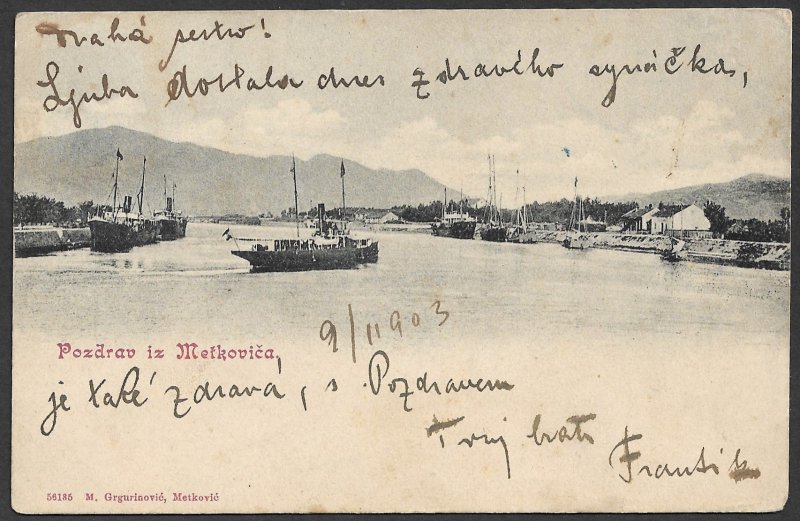 Drahá sestro!
Ljuba dostala dnes zdravého synáčka,
9/11 903
Pozdrav iz Metkoviča.
je také zdravá, s Pozdravem
Tvuj bratr
František
56135 M. Grgurinović, Metković